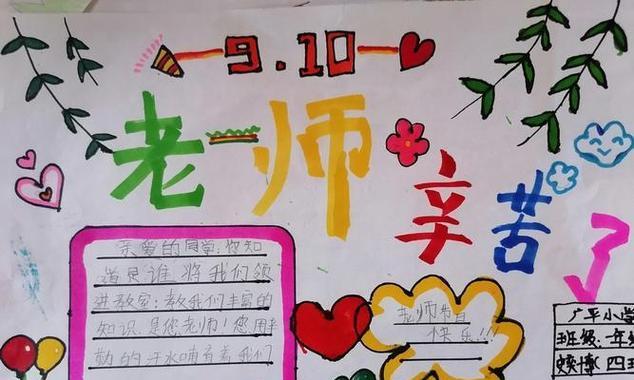 9.10
老师
辛苦了
亲爱的同学:你知
道是谁将我们领
进教室:教我们丰富的
知识是您老师!您用辛
勤的汗水哺育着我们
老师节日
快乐!!!
广平小学
班级:一年级
四班